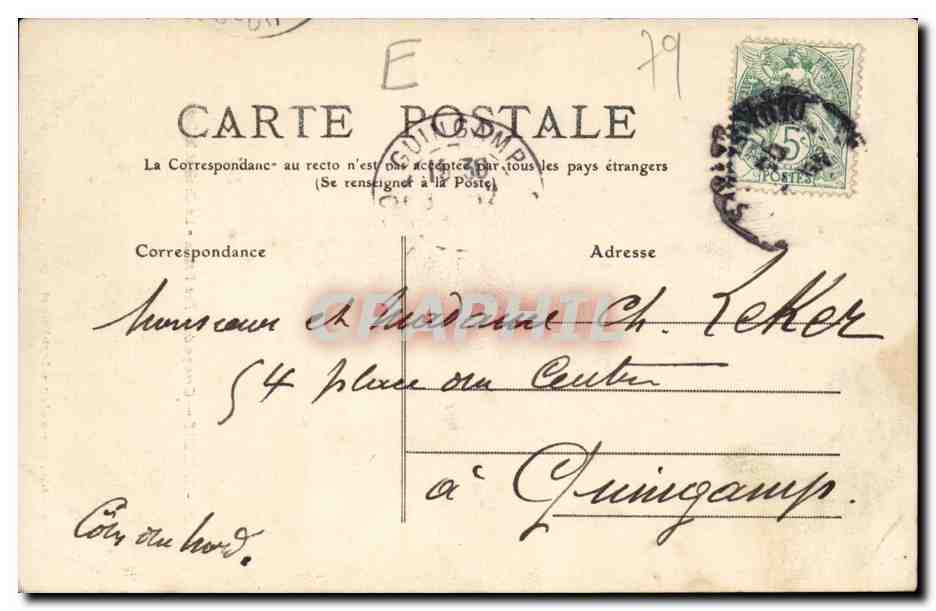 E
79
CARTE POSTALE
La Correspondance au recto n'est pas acceptée par tous les pays étrangers
(Se renseigner à la Poste)
GUINGAMP
5c
POSTES
Correspondance
Adresse
CPAPHIL
Monsieur et Madame Ch. LeKer
54 place du Centre
à Guingamp.
Côtes du Nord.